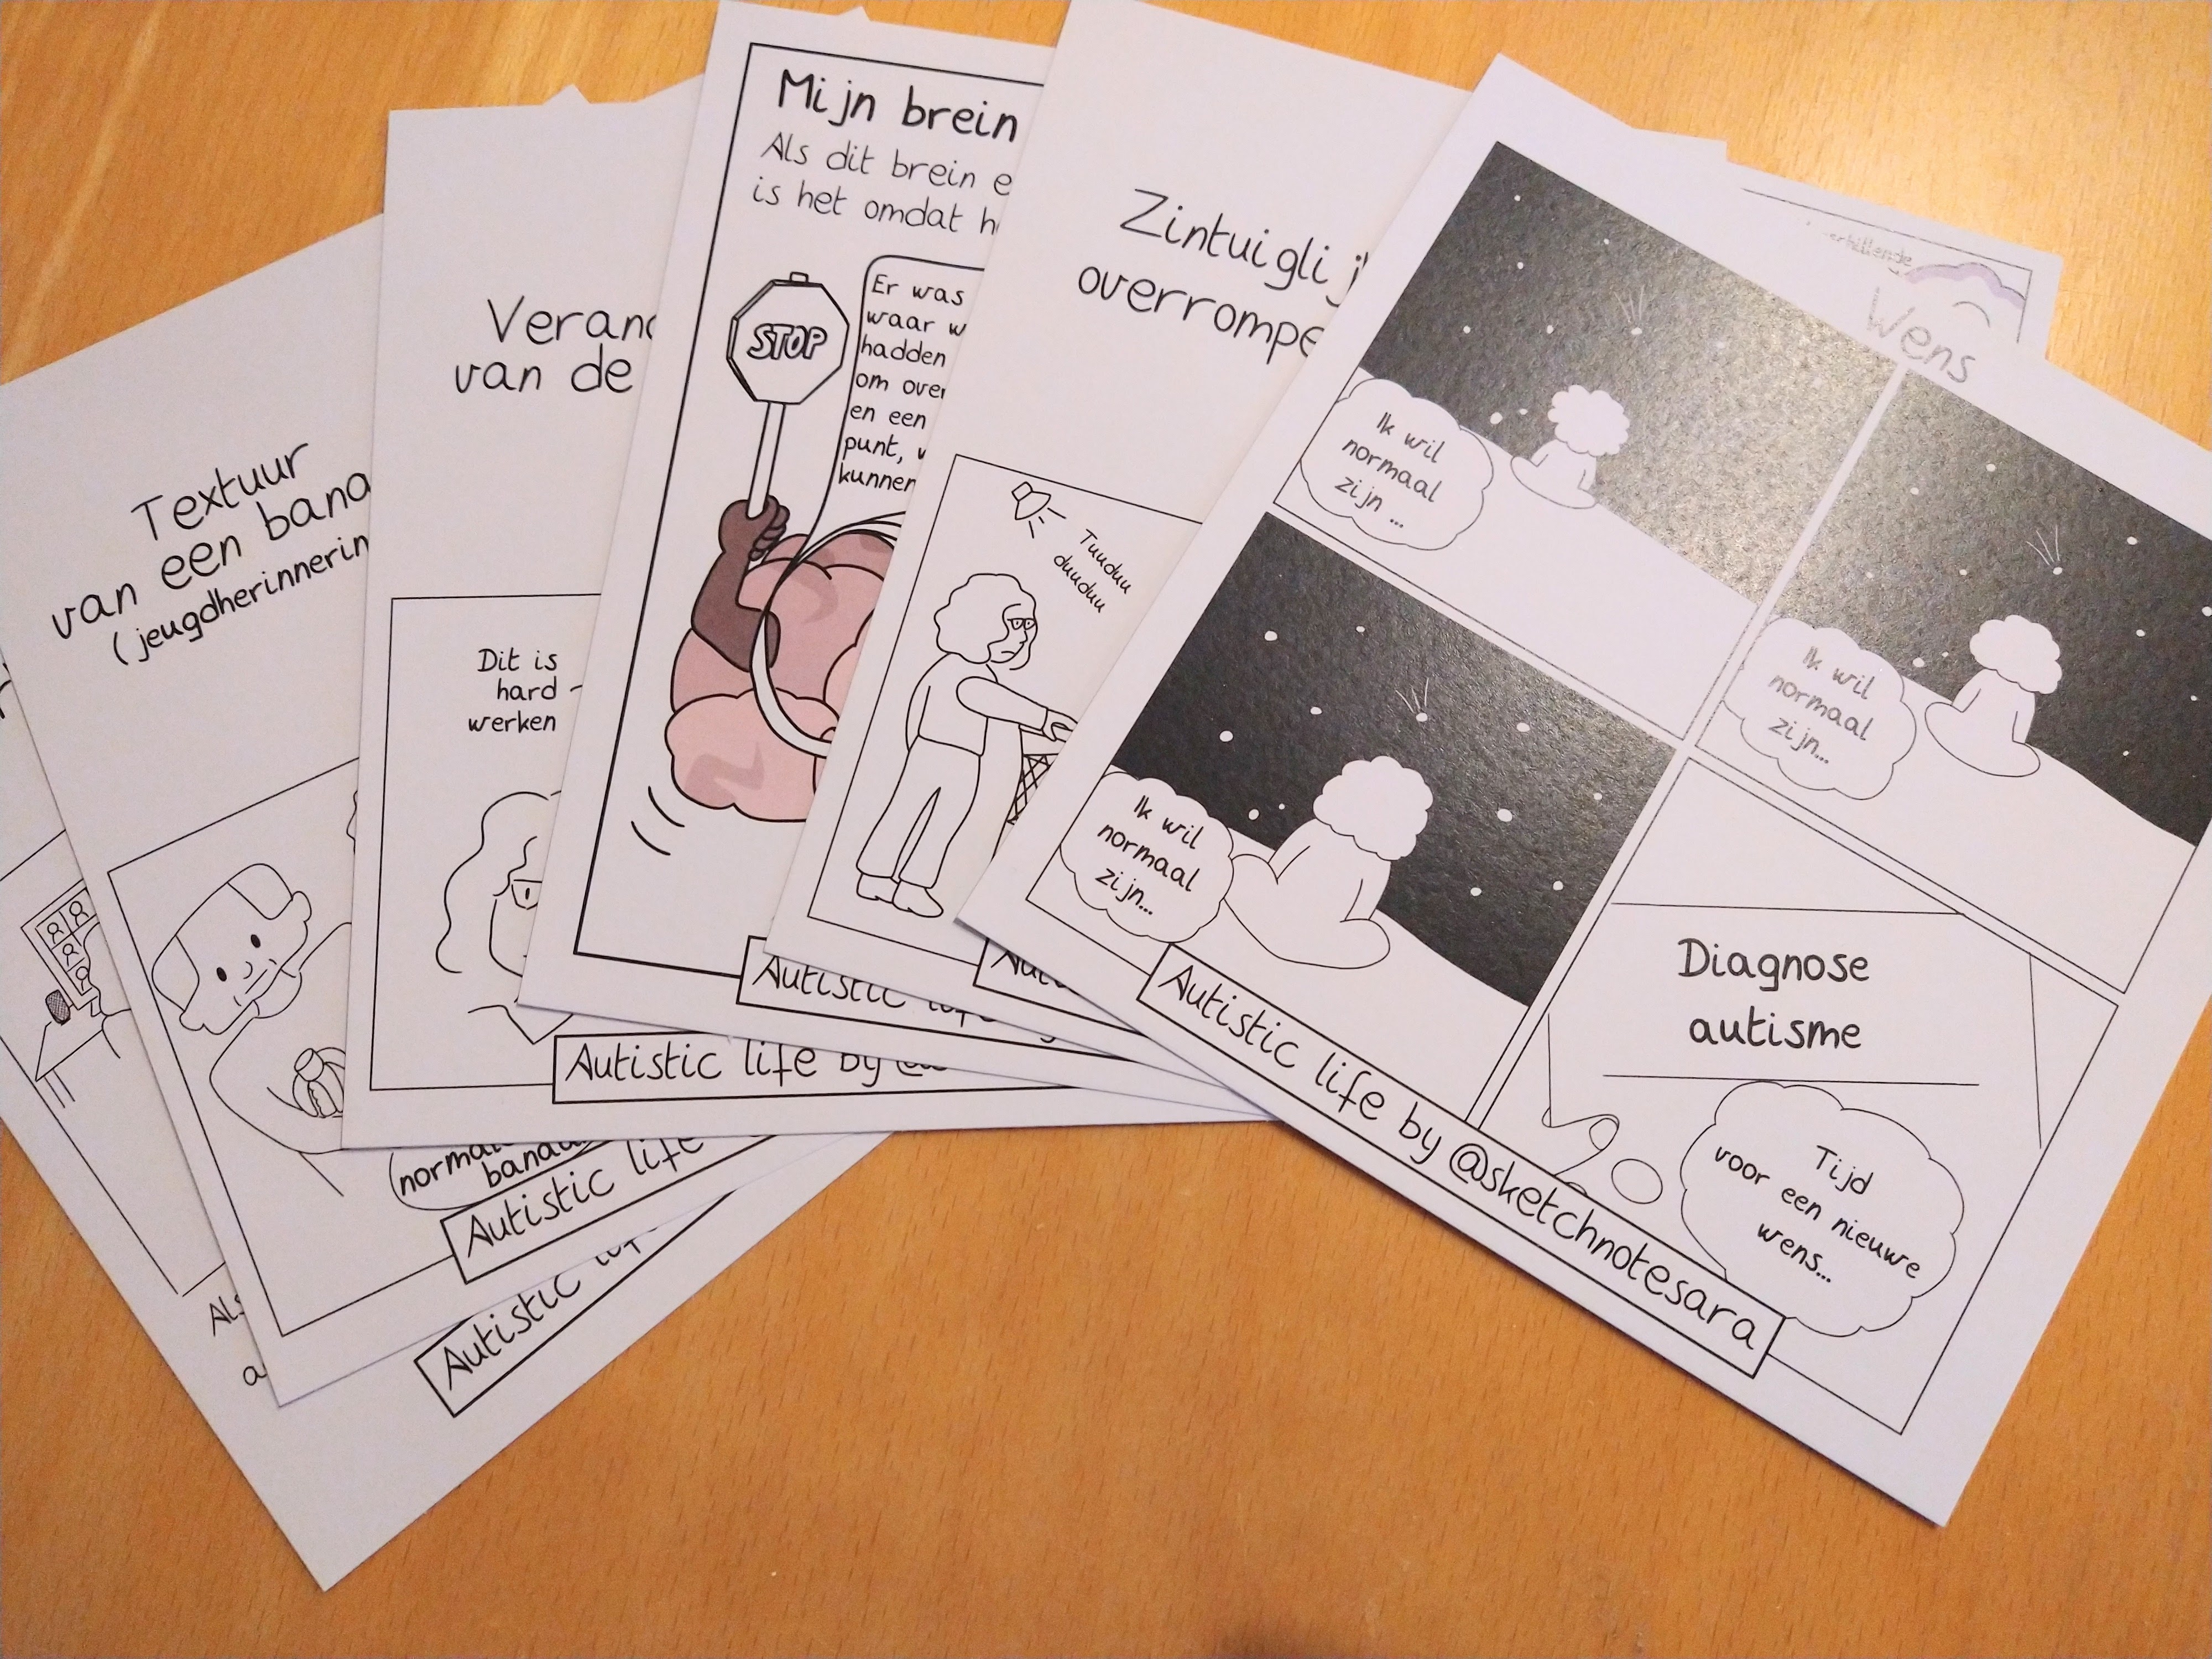 Textuur
van een bana
(jeugdherinnerin
normale
Autistic life
Als
a
Autistic
Veran
van de
Dit is
hard
werken
Autistic life by
Mijn brein
Als dit brein e
is het omdat h
STOP
Er was
waar w
hadden
om over
en een
punt, w
kunnen
Autistic life
Zintuiglij
overrompe
Tuuduu
duuduu
Wens
Ik wil
normaal
zijn ...
Ik wil
normaal
zijn...
Ik wil
normaal
zijn...
Diagnose
autisme
Tijd
voor een nieuwe
wens...
Autistic life by @sketchnotesara